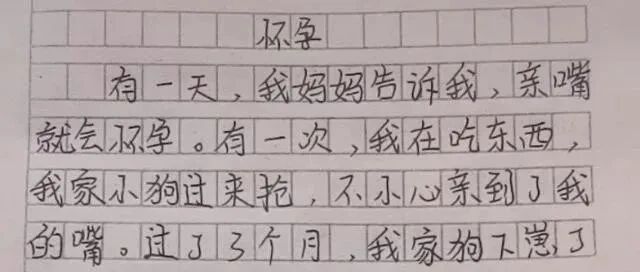 怀孕
有一天，我妈妈告诉我，亲嘴
就会怀孕。有一次，我在吃东西，
我家小狗过来抢，不小心亲到了我
的嘴。过了3个月，我家狗下崽了